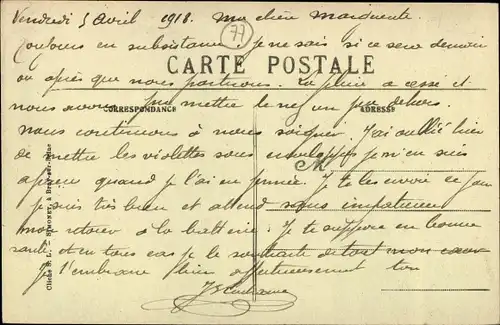 Vendredi 5 Avril 1918. Ma chère Marguerite
77
Toujours en subsistance je ne sais si ce sera demain
ou après que nous partirons. La pluie a cessé et
CARTE POSTALE
nous avons pu mettre le nez un peu dehors.
CORRESPONDANCE
ADRESSE
nous continuons à nous soigner. J'ai oublié hier
de mettre les violettes sous enveloppe je m'en suis
aperçu quand je l'ai eu fermée. Je te les envoie ce jour
je suis très bien et attend sans impatience
mon retour à la batterie. Je te suppose en bonne
santé et en tous cas je le souhaite de tout mon cœur
Je t'embrasse bien affectueusement ton
Cliché E. L.